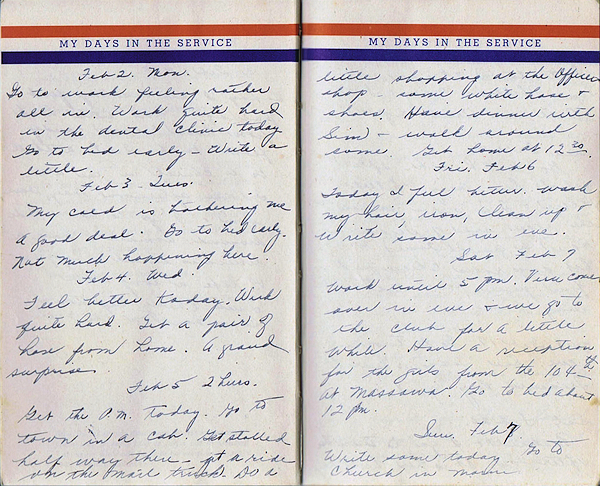 MY DAYS IN THE SERVICE
Feb 2. Mon.
Go to work feeling rather
all in. Work quite hard
in the dental clinic today
Go to bed early - Write a
little.
Feb 3 Tues.
My cold is bothering me
a good deal. Go to bed early.
Not much happening here.
Feb 4. Wed.
Feel better today. Work
quite hard. Get a pair of
hose from home. A grand
surprise.
Feb 5 Thurs.
Get the P.M. today. Go to
town in a cab. Get stalled
half way there - get a ride
on the mail truck. Do a
MY DAYS IN THE SERVICE
little shopping at the Officers
shop - some white hose &
shoes. Have dinner with
Sim - walk around
some. Get home at 12 30.
Fri. Feb 6
Today I feel better. Wash
my hair, iron, clean up &
Write some in eve.
Sat Feb 7
Work until 5 pm. Vera comes
over in eve & we go to
the club for a little
while. Have a reception
for the girls from the 104th
at Massawa. Go to bed about
12 pm.
Sun. Feb 7
Write some today. Go to
Church in morn